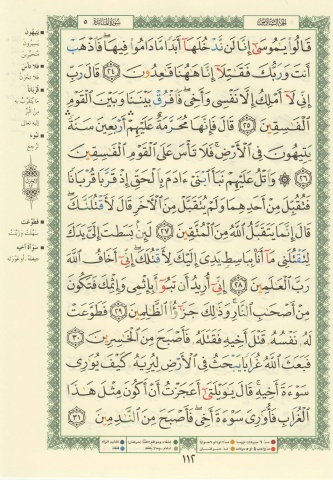 سورة المائدة ٥
قَالُوا۟ يَـٰمُوسَىٰٓ إِنَّا لَن نَّدْخُلَهَآ أَبَدًا مَّا دَامُوا۟ فِيهَا ۖ فَٱذْهَبْ
أَنتَ وَرَبُّكَ فَقَـٰتِلَآ إِنَّا هَـٰهُنَا قَـٰعِدُونَ ٢٤ قَالَ رَبِّ
إِنِّى لَآ أَمْلِكُ إِلَّا نَفْسِى وَأَخِى ۖ فَٱفْرُقْ بَيْنَنَا وَبَيْنَ ٱلْقَوْمِ
ٱلْفَـٰسِقِينَ ٢٥ قَالَ فَإِنَّهَا مُحَرَّمَةٌ عَلَيْهِمْ ۛ أَرْبَعِينَ سَنَةً ۛ
يَتِيهُونَ فِى ٱلْأَرْضِ ۚ فَلَا تَأْسَ عَلَى ٱلْقَوْمِ ٱلْفَـٰسِقِينَ
٢٦ ۞ وَٱتْلُ عَلَيْهِمْ نَبَأَ ٱبْنَىْ ءَادَمَ بِٱلْحَقِّ إِذْ قَرَّبَا قُرْبَانًا
فَتُقُبِّلَ مِنْ أَحَدِهِمَا وَلَمْ يُتَقَبَّلْ مِنَ ٱلْـَٔاخَرِ قَالَ لَأَقْتُلَنَّكَ ۖ
قَالَ إِنَّمَا يَتَقَبَّلُ ٱللَّهُ مِنَ ٱلْمُتَّقِينَ ٢٧ لَئِنۢ بَسَطتَ إِلَىَّ يَدَكَ
لِتَقْتُلَنِى مَآ أَنَا۠ بِبَاسِطٍ يَدِىَ إِلَيْكَ لِأَقْتُلَكَ ۖ إِنِّىٓ أَخَافُ ٱللَّهَ
رَبَّ ٱلْعَـٰلَمِينَ ٢٨ إِنِّىٓ أُرِيدُ أَن تَبُوٓأَ بِإِثْمِى وَإِثْمِكَ فَتَكُونَ
مِنْ أَصْحَـٰبِ ٱلنَّارِ ۚ وَذَٰلِكَ جَزَٰٓؤُا۟ ٱلظَّـٰلِمِينَ ٢٩ فَطَوَّعَتْ
لَهُۥ نَفْسُهُۥ قَتْلَ أَخِيهِ فَقَتَلَهُۥ فَأَصْبَحَ مِنَ ٱلْخَـٰسِرِينَ ٣٠
فَبَعَثَ ٱللَّهُ غُرَابًا يَبْحَثُ فِى ٱلْأَرْضِ لِيُرِيَهُۥ كَيْفَ يُوَٰرِى
سَوْءَةَ أَخِيهِ ۚ قَالَ يَـٰوَيْلَتَىٰٓ أَعَجَزْتُ أَنْ أَكُونَ مِثْلَ هَـٰذَا
ٱلْغُرَابِ فَأُوَٰرِىَ سَوْءَةَ أَخِى ۖ فَأَصْبَحَ مِنَ ٱلنَّـٰدِمِينَ ٣١
١١٢